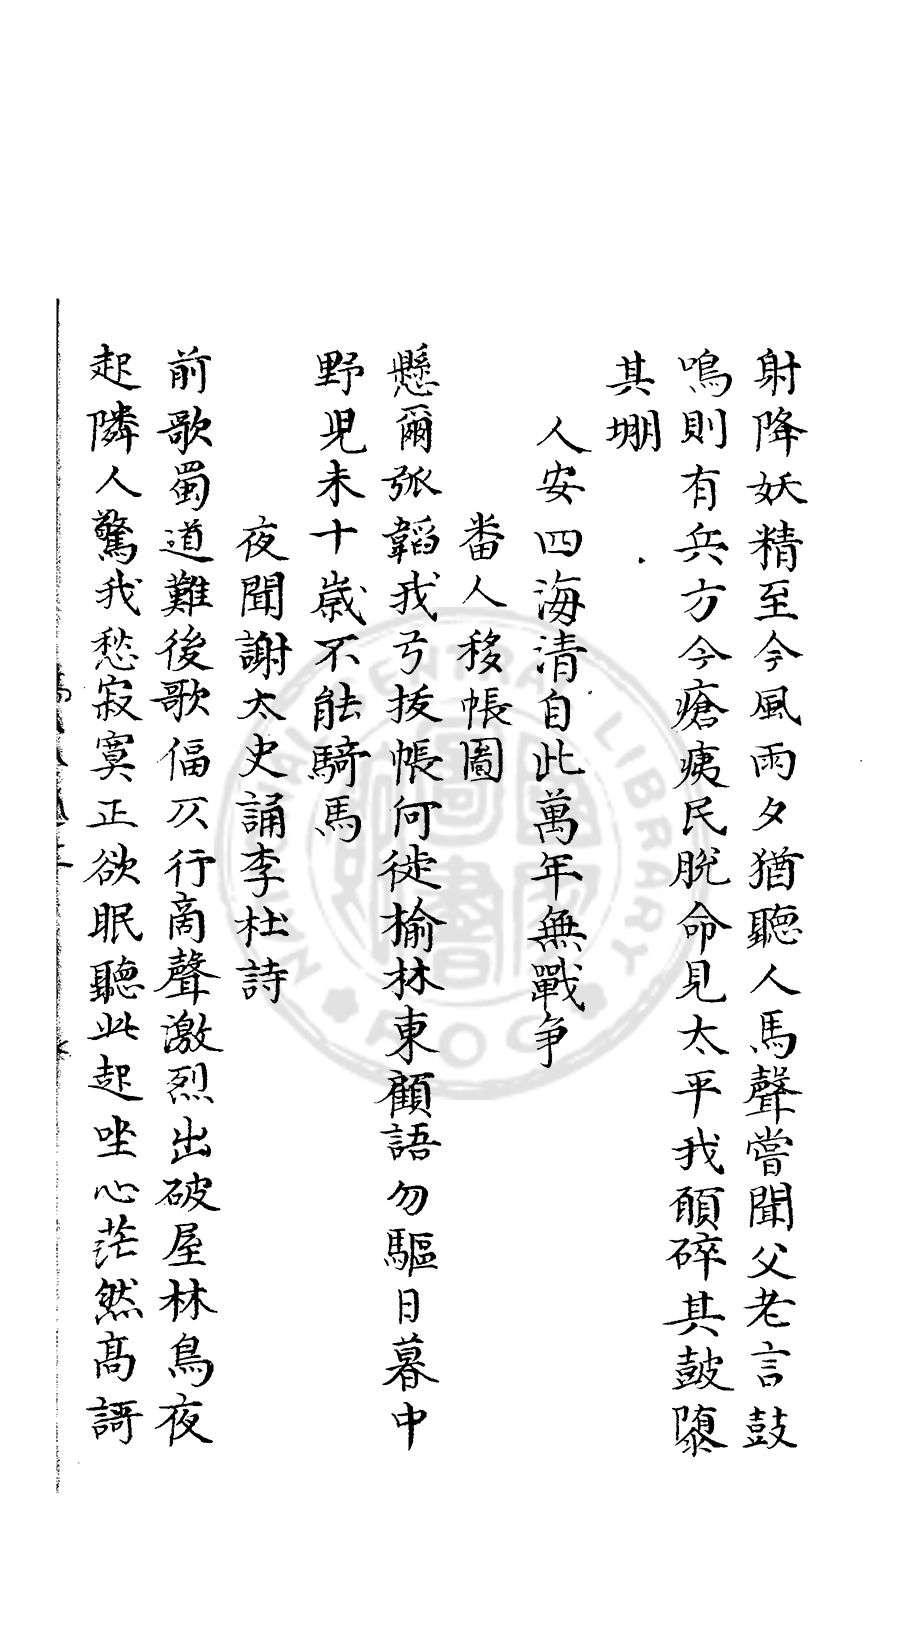 射降妖精至今風雨夕猶聽人馬聲嘗聞父老言鼓
鳴則有兵方今瘡痍民脫命見太平我願碎其鼓隳
其堋
人安四海清自此萬年無戰爭
畨人移帳圖
懸爾弧韜我弓拔帳何徙榆林東顧語勿驅日暮中
野児未十歲不能騎馬
夜聞謝太史誦李杜詩
前歌蜀道難後歌偪仄行商聲激烈出破屋林鳥夜
起隣人驚我愁寂寞正欲眠聽此起坐心茫然高謌
NATIONAL CENTRAL LIBRARY
ROC